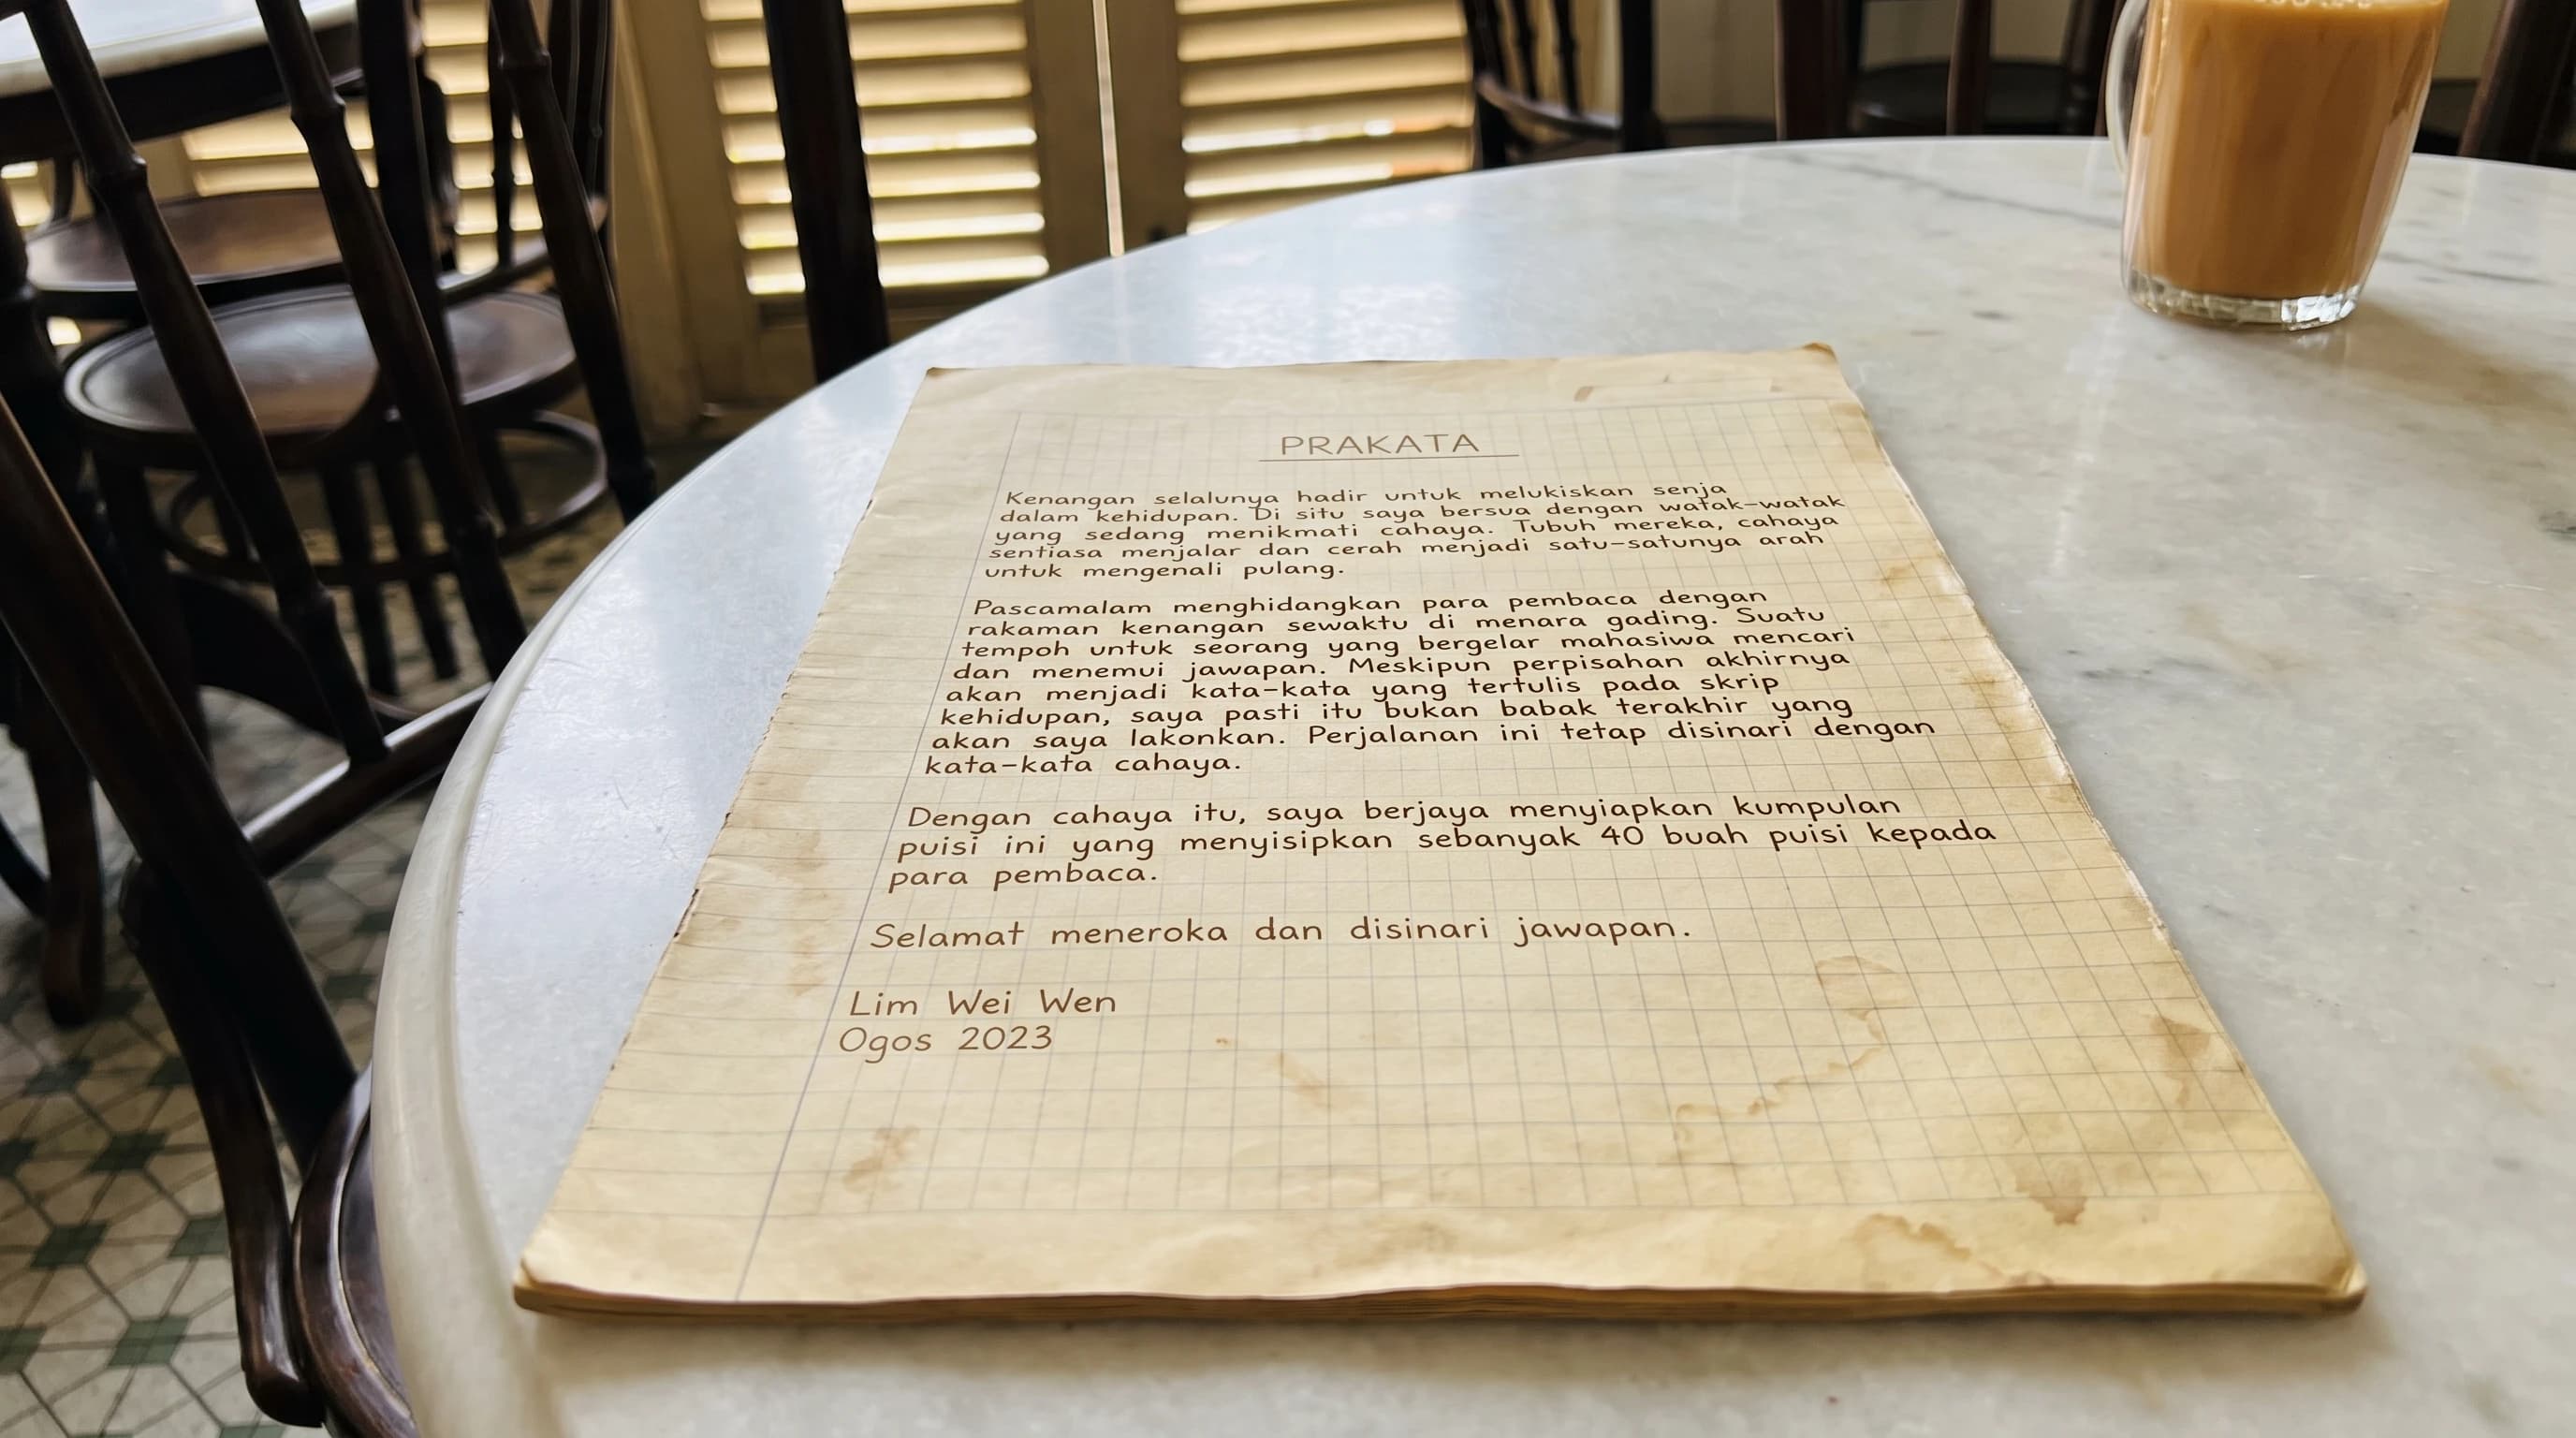 PRAKATA
Kenangan selalunya hadir untuk melukiskan senja
dalam kehidupan. Di situ saya bersua dengan watak-watak
yang sedang menikmati cahaya. Tubuh mereka, cahaya
sentiasa menjalar dan cerah menjadi satu-satunya arah
untuk mengenali pulang.
Pascamalam menghidangkan para pembaca dengan
rakaman kenangan sewaktu di menara gading. Suatu
tempoh untuk seorang yang bergelar mahasiwa mencari
dan menemui jawapan. Meskipun perpisahan akhirnya
akan menjadi kata-kata yang tertulis pada skrip
kehidupan, saya pasti itu bukan babak terakhir yang
akan saya lakonkan. Perjalanan ini tetap disinari dengan
kata-kata cahaya.
Dengan cahaya itu, saya berjaya menyiapkan kumpulan
puisi ini yang menyisipkan sebanyak 40 buah puisi kepada
para pembaca.
Selamat meneroka dan disinari jawapan.
Lim Wei Wen
Ogos 2023